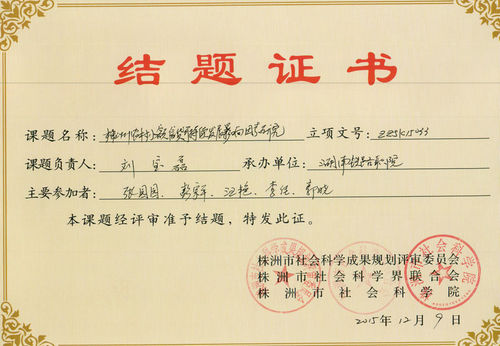 结题证书
课题名称：株洲农村小额信贷可持续发展影响因素研究 立项文号：ZZSK15033
课题负责人：刘宝磊 承办单位：湖南
主要参加者：张园园、彭、江艳、李佳、郭晓
本课题经评审准予结题，特发此证。
株洲市社会科学成果规划评审委员会
株洲市社会科学界联合会
株洲市社会科学院
2015年12月9日